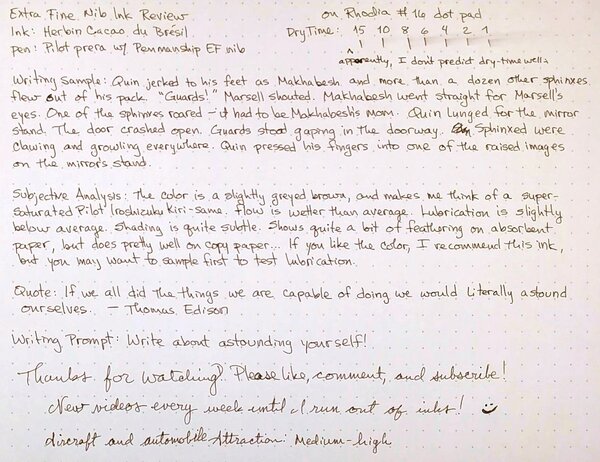 Extra Fine Nib Ink Review on Rhodia #16 dot pad
Ink: Herbin Cacao du Brésil Dry Time: 15 10 8 6 4 2 1
Pen: Pilot prera w/ Penmanship EF nib apparently, I don't predict dry-time well.
Writing Sample: Quin jerked to his feet as Makhabesh and more than a dozen other sphinxes
flew out of his pack. "Guards!" Marsell shouted. Makhabesh went straight for Marsell's
eyes. One of the sphinxes roared – it had to be Makhabesh's mom. Quin lunged for the mirror
stand. The door crashed open. Guards stood gaping in the doorway. Sphinxed were
clawing and growling everywhere. Quin pressed his fingers into one of the raised images
on the mirror's stand.
Subjective Analysis: The color is a slightly greyed brown, and makes me think of a super-
saturated Pilot Iroshizuku Kiri-same. Flow is wetter than average. Lubrication is slightly
below average. Shading is quite subtle. Shows quite a bit of feathering on absorbent
paper, but does pretty well on copy paper... If you like the color, I recommend this ink,
but you may want to sample first to test lubrication.
Quote: If we all did the things we are capable of doing we would literally astound
ourselves. – Thomas Edison
Writing Prompt: Write about astounding yourself!
Thanks for watching! Please like, comment, and subscribe!
New videos every week until I run out of inks!
Aircraft and automobile Attraction: Medium-high